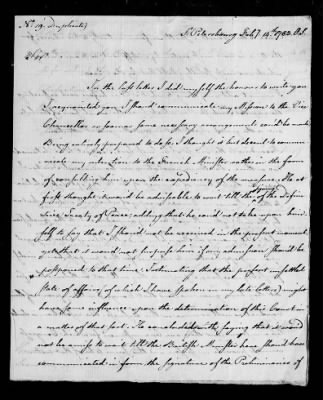 No. 19. (duplicate) St. Petersburg Feby. 14th. 1783. O.S.
Sir
In the last letter I did myself the honour to write you
I acquainted you I shou'd communicate my Mission to the Vice
Chancellor as soon as some necessary arrangements cou'd be made
Being entirely prepared to do so, I thought it but decent to commu-
nicate my intention to the French Minister rather in the form
of consulting him upon the expediency of the measure. He at
first thought it wou'd be adviseable to wait till the signature of the defini-
tive Treaty of Peace, adding that he cou'd not take upon him-
self to say that I shou'd not be received in the present moment
yet that it wou'd not surprise him if my admission shou'd be
postponed to that time. Intimating that the present unsettled
state of affairs (of which I have spoken in my late letters) might
have some influence upon the determination of this Court in
a matter of that sort. He concluded with saying that it wou'd
not be amiss to wait till the British Minister here shou'd have
communicated in form the signature of the Preliminaries of